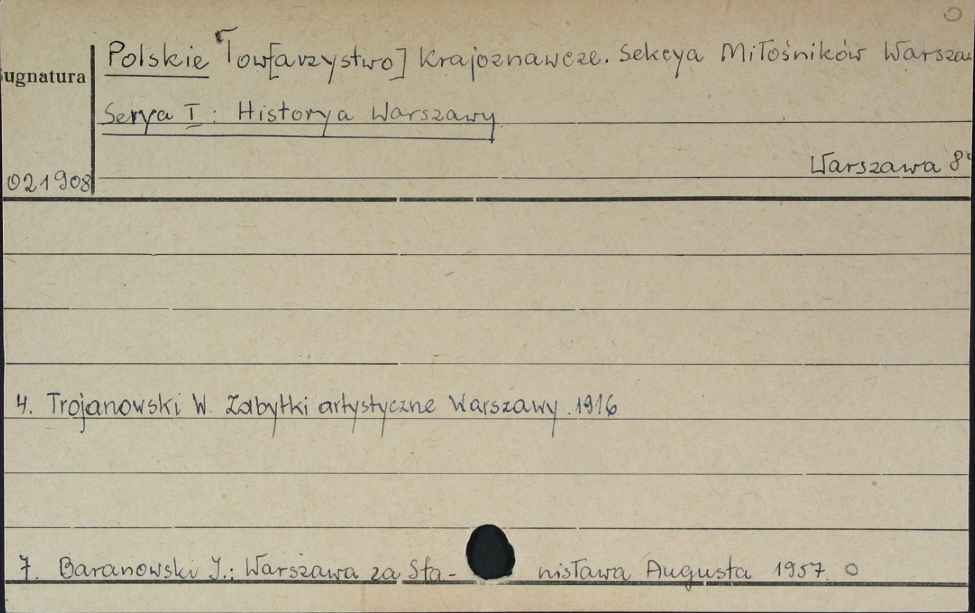 Polskie Tow[arzystwo] Krajoznawcze. Sekcya Miłośników Warsza
Sygnatura
Serya I: Historya Warszawy
Warszawa 8°
021908
4. Trojanowski W. Zabytki artystyczne Warszawy. 1916
7. Baranowski I.: Warszawa za Sta- nisława Augusta 1957. O